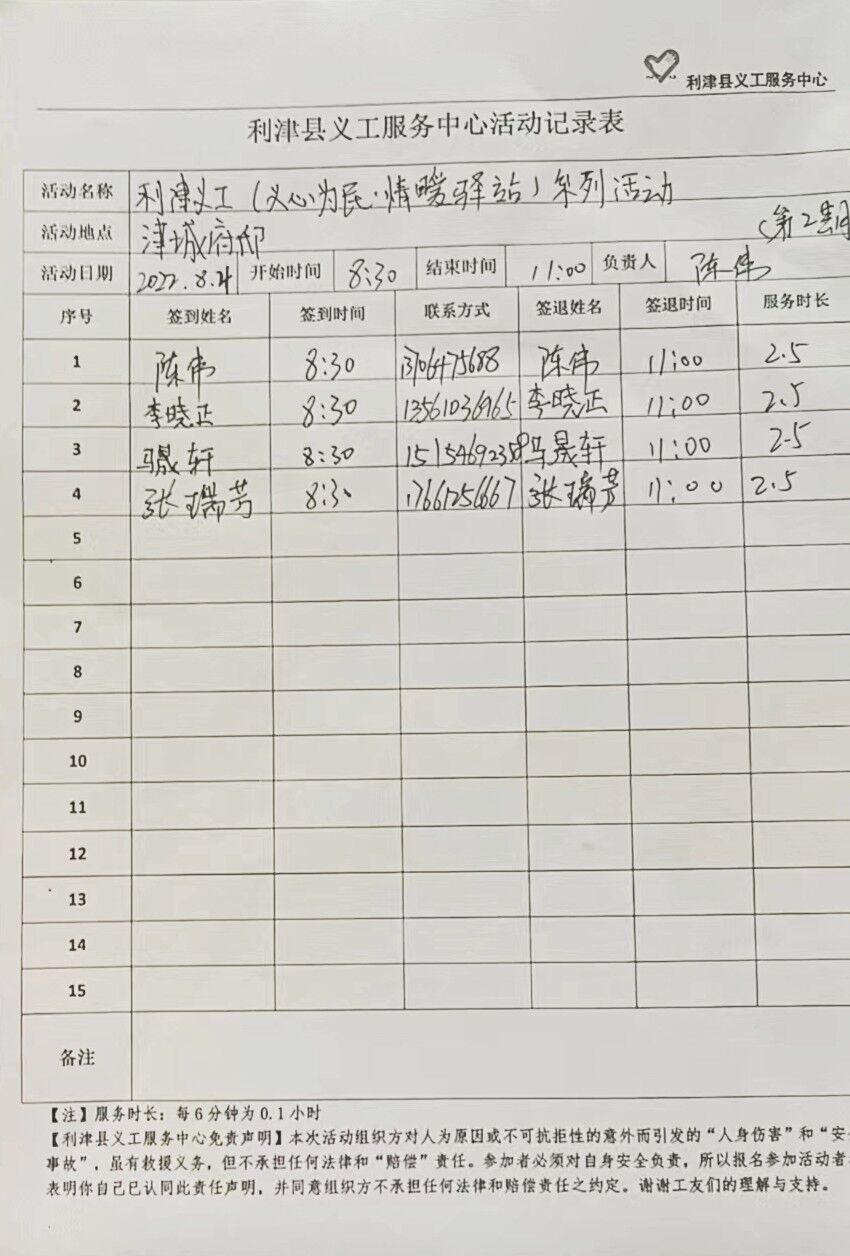 利津县义工服务中心
利津县义工服务中心活动记录表
活动名称 利津义工（义心为民·情暖驿站）系列活动
活动地点 津城府邸 （第2期
活动日期 2022.8.21 开始时间 8:30 结束时间 11:00 负责人 陈伟
序号 签到姓名 签到时间 联系方式 签退姓名 签退时间 服务时长
1 陈伟 8:30 陈伟 11:00 2.5
2 李晓正 8:30 13561036965 李晓正 11:00 2.5
3 马晟轩 8:30 马晟轩 11:00 2.5
4 张瑞芳 8:30 17661256667 张瑞芳 11:00 2.5
5
6
7
8
9
10
11
12
13
14
15
备注
【注】服务时长：每6分钟为0.1小时
【利津县义工服务中心免责声明】本次活动组织方对人为原因或不可抗拒性的意外而引发的“人身伤害”和“安
事故”，虽有救援义务，但不承担任何法律和“赔偿”责任。参加者必须对自身安全负责，所以报名参加活动者
表明你自己已认同此责任声明，并同意组织方不承担任何法律和赔偿责任之约定。谢谢工友们的理解与支持。